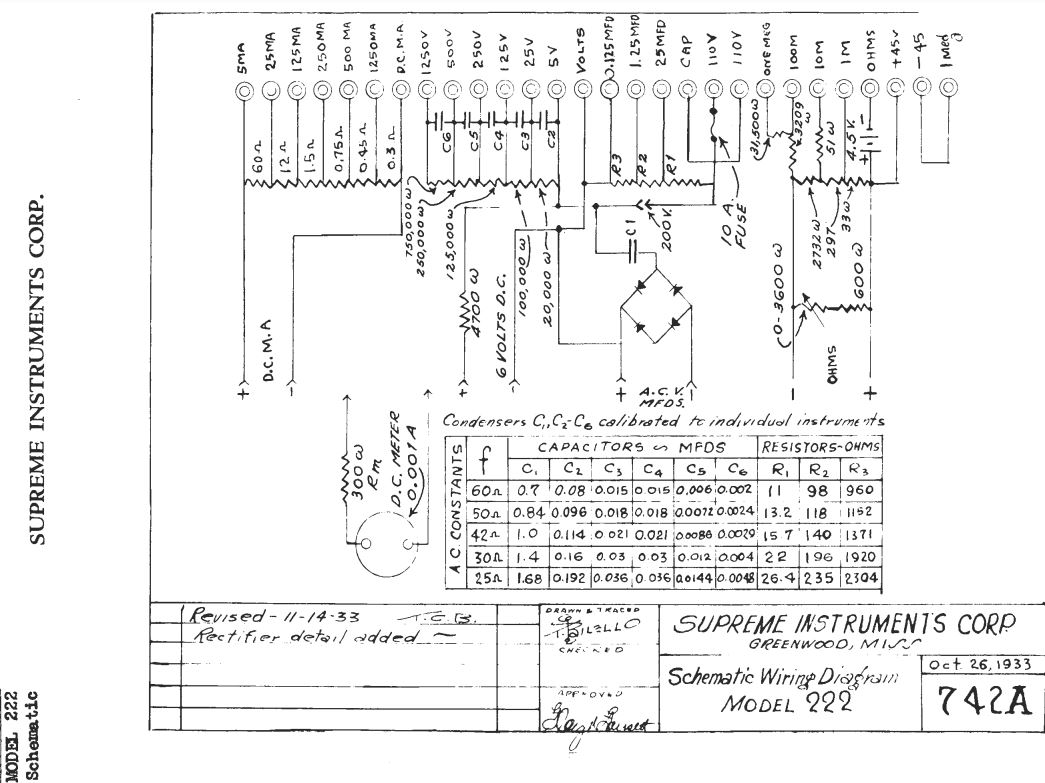 SUPREME INSTRUMENTS CORP.
MODEL 222
Schematic
5MA
25MA
125MA
250MA
500 MA
1250MA
D.C.M.A
1250V
500V
250V
125V
25V
5V
VOLTS
0.125 MFD
1.25 MFD
25 MFD
CAP
110V
110V
ONE MEG
100M
10M
1M
OHMS
+45V
-45
1 Meg
60Ω
12Ω
1.5Ω
0.75Ω
0.45Ω
0.3Ω
C6
C5
C4
C3
C2
R3
R2
R1
31,500ω
3209 ω
51ω
4.5V.
+
-
750,000ω
250,000ω
125,000ω
100,000ω
20,000ω
4700ω
6 VOLTS D.C.
C1
200V.
10 A. FUSE
2732ω
297
33ω
0-3600ω
600ω
OHMS
D.C.M.A
+
-
+
-
+
A.C.V.
MFDS.
-
-
+
300ω
Rm
D.C. METER
0.001A
Condensers C1,C2-C6 calibrated to individual instruments
A.C. CONSTANTS
f CAPACITORS ∽ MFDS RESISTORS-OHMS
C1 C2 C3 C4 C5 C6 R1 R2 R3
60Ω 0.7 0.08 0.015 0.015 0.006 0.002 11 98 960
50Ω 0.84 0.096 0.018 0.018 0.0072 0.0024 13.2 118 1152
42Ω 1.0 0.114 0.021 0.021 0.0086 0.0029 15.7 140 1371
30Ω 1.4 0.16 0.03 0.03 0.012 0.004 22 196 1920
25Ω 1.68 0.192 0.036 0.036 0.0144 0.0048 26.4 235 2304
Revised-11-14-33 T.C.B.
Rectifier detail added
DRAWN & TRACED
CHECKED
APPROVED
SUPREME INSTRUMENTS CORP
GREENWOOD, MISS
Schematic Wiring Diagram
MODEL 222
Oct. 26, 1933
742A